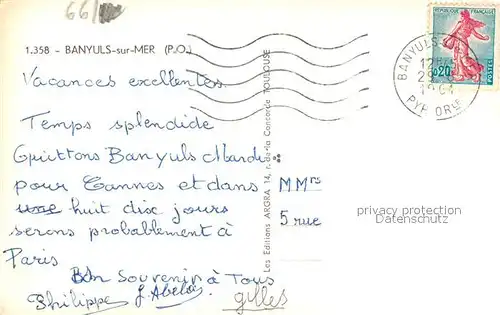 66/
1.358 - BANYULS-sur-MER (P.O.)
Vacances excellentes
Temps splendide
Quittons Banyuls Mardi
pour Cannes et dans
huit dix jours
serons probablement à
Paris
Bon Souvenir à Tous
Philippe J. Abela
gilles
Les Editions ARGRA 14, r. de la Concorde TOULOUSE
REPUBLIQUE FRANÇAISE
0,20
POSTES
BANYULS-
12H
PYR. ORLES
MMrs
5 rue
privacy protection
Datenschutz